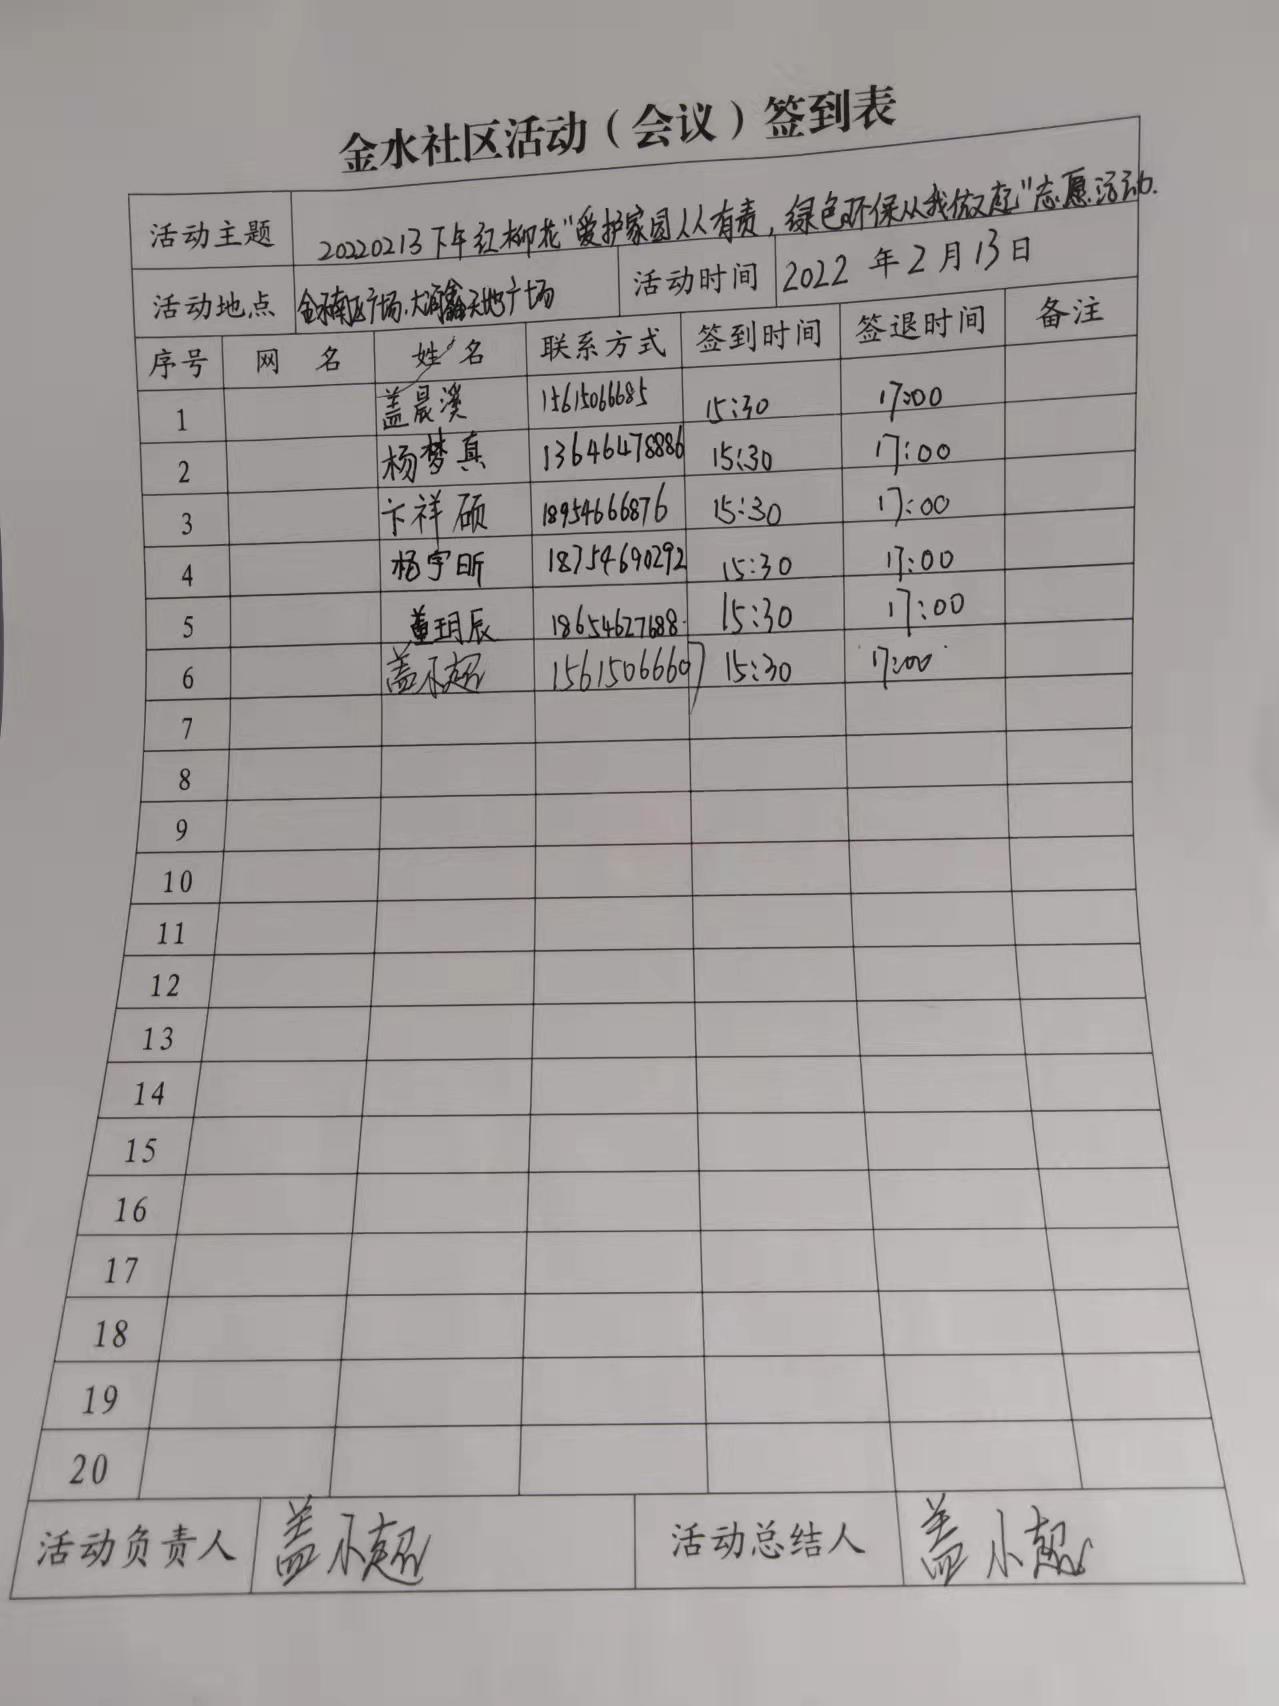 金水社区活动（会议）签到表
活动主题 20220213下午红柳花"爱护家园人人有责，绿色环保从我做起"志愿活动.
活动地点 金水南区广场.大河鑫天地广场 活动时间 2022年2月13日
序号 网名 姓名 联系方式 签到时间 签退时间 备注
1 盖晨溪 15615066685 15:30 17:00
2 杨梦真 13646478886 15:30 17:00
3 卞祥硕 18954666876 15:30 17:00
4 杨宇昕 18754690292 15:30 17:00
5 董玥辰 18654627688 15:30 17:00
6 盖小超 15615066607 15:30 17:00
7
8
9
10
11
12
13
14
15
16
17
18
19
20
活动负责人 盖小超 活动总结人 盖小超